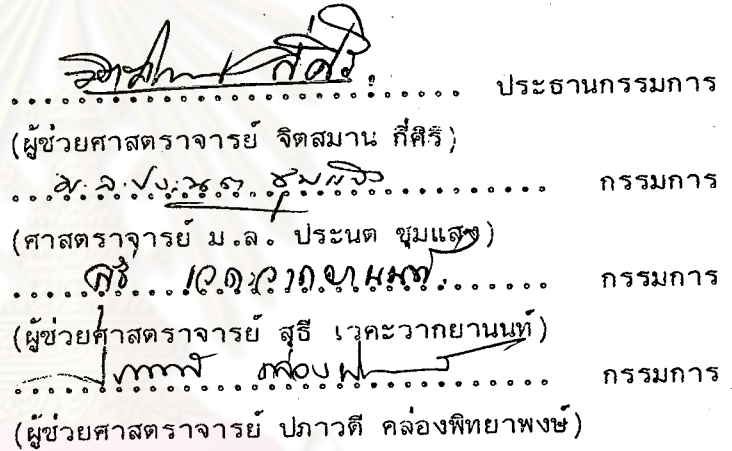 ประธานกรรมการ
(ผู้ช่วยศาสตราจารย์ จิตสมาน กี่ศิริ)
ม.ล. ประนต ชุมแสง กรรมการ
(ศาสตราจารย์ ม.ล. ประนต ชุมแสง)
สุธี เวคะวากยานนท์ กรรมการ
(ผู้ช่วยศาสตราจารย์ สุธี เวคะวากยานนท์)
กรรมการ
(ผู้ช่วยศาสตราจารย์ ปภาวดี คล่องพิทยาพงษ์)